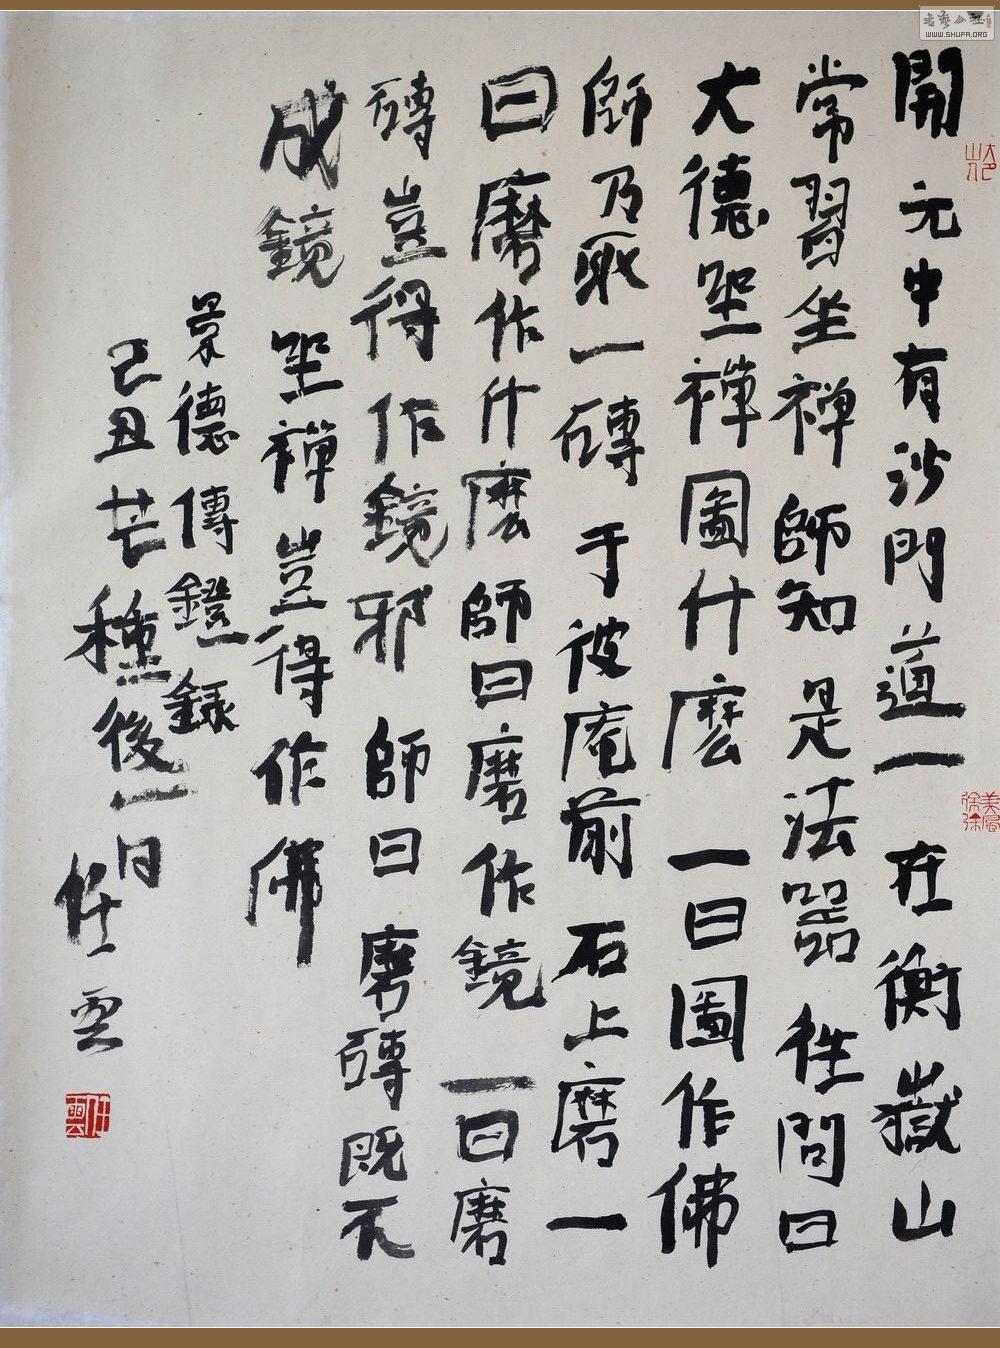 開元中有沙門道一在衡嶽山
常習坐禅師知是法器往問曰
大德坐禪圖什麼一曰圖作佛
師乃取一磚于彼庵前石上磨一
曰磨作什麼師曰磨作鏡一曰磨
磚豈得作鏡邪師曰磨磚既不
成鏡坐禪豈得作佛
景德傳鐙錄
己丑芒種後一日任雲
任雲
WWW.SHUFA.ORG